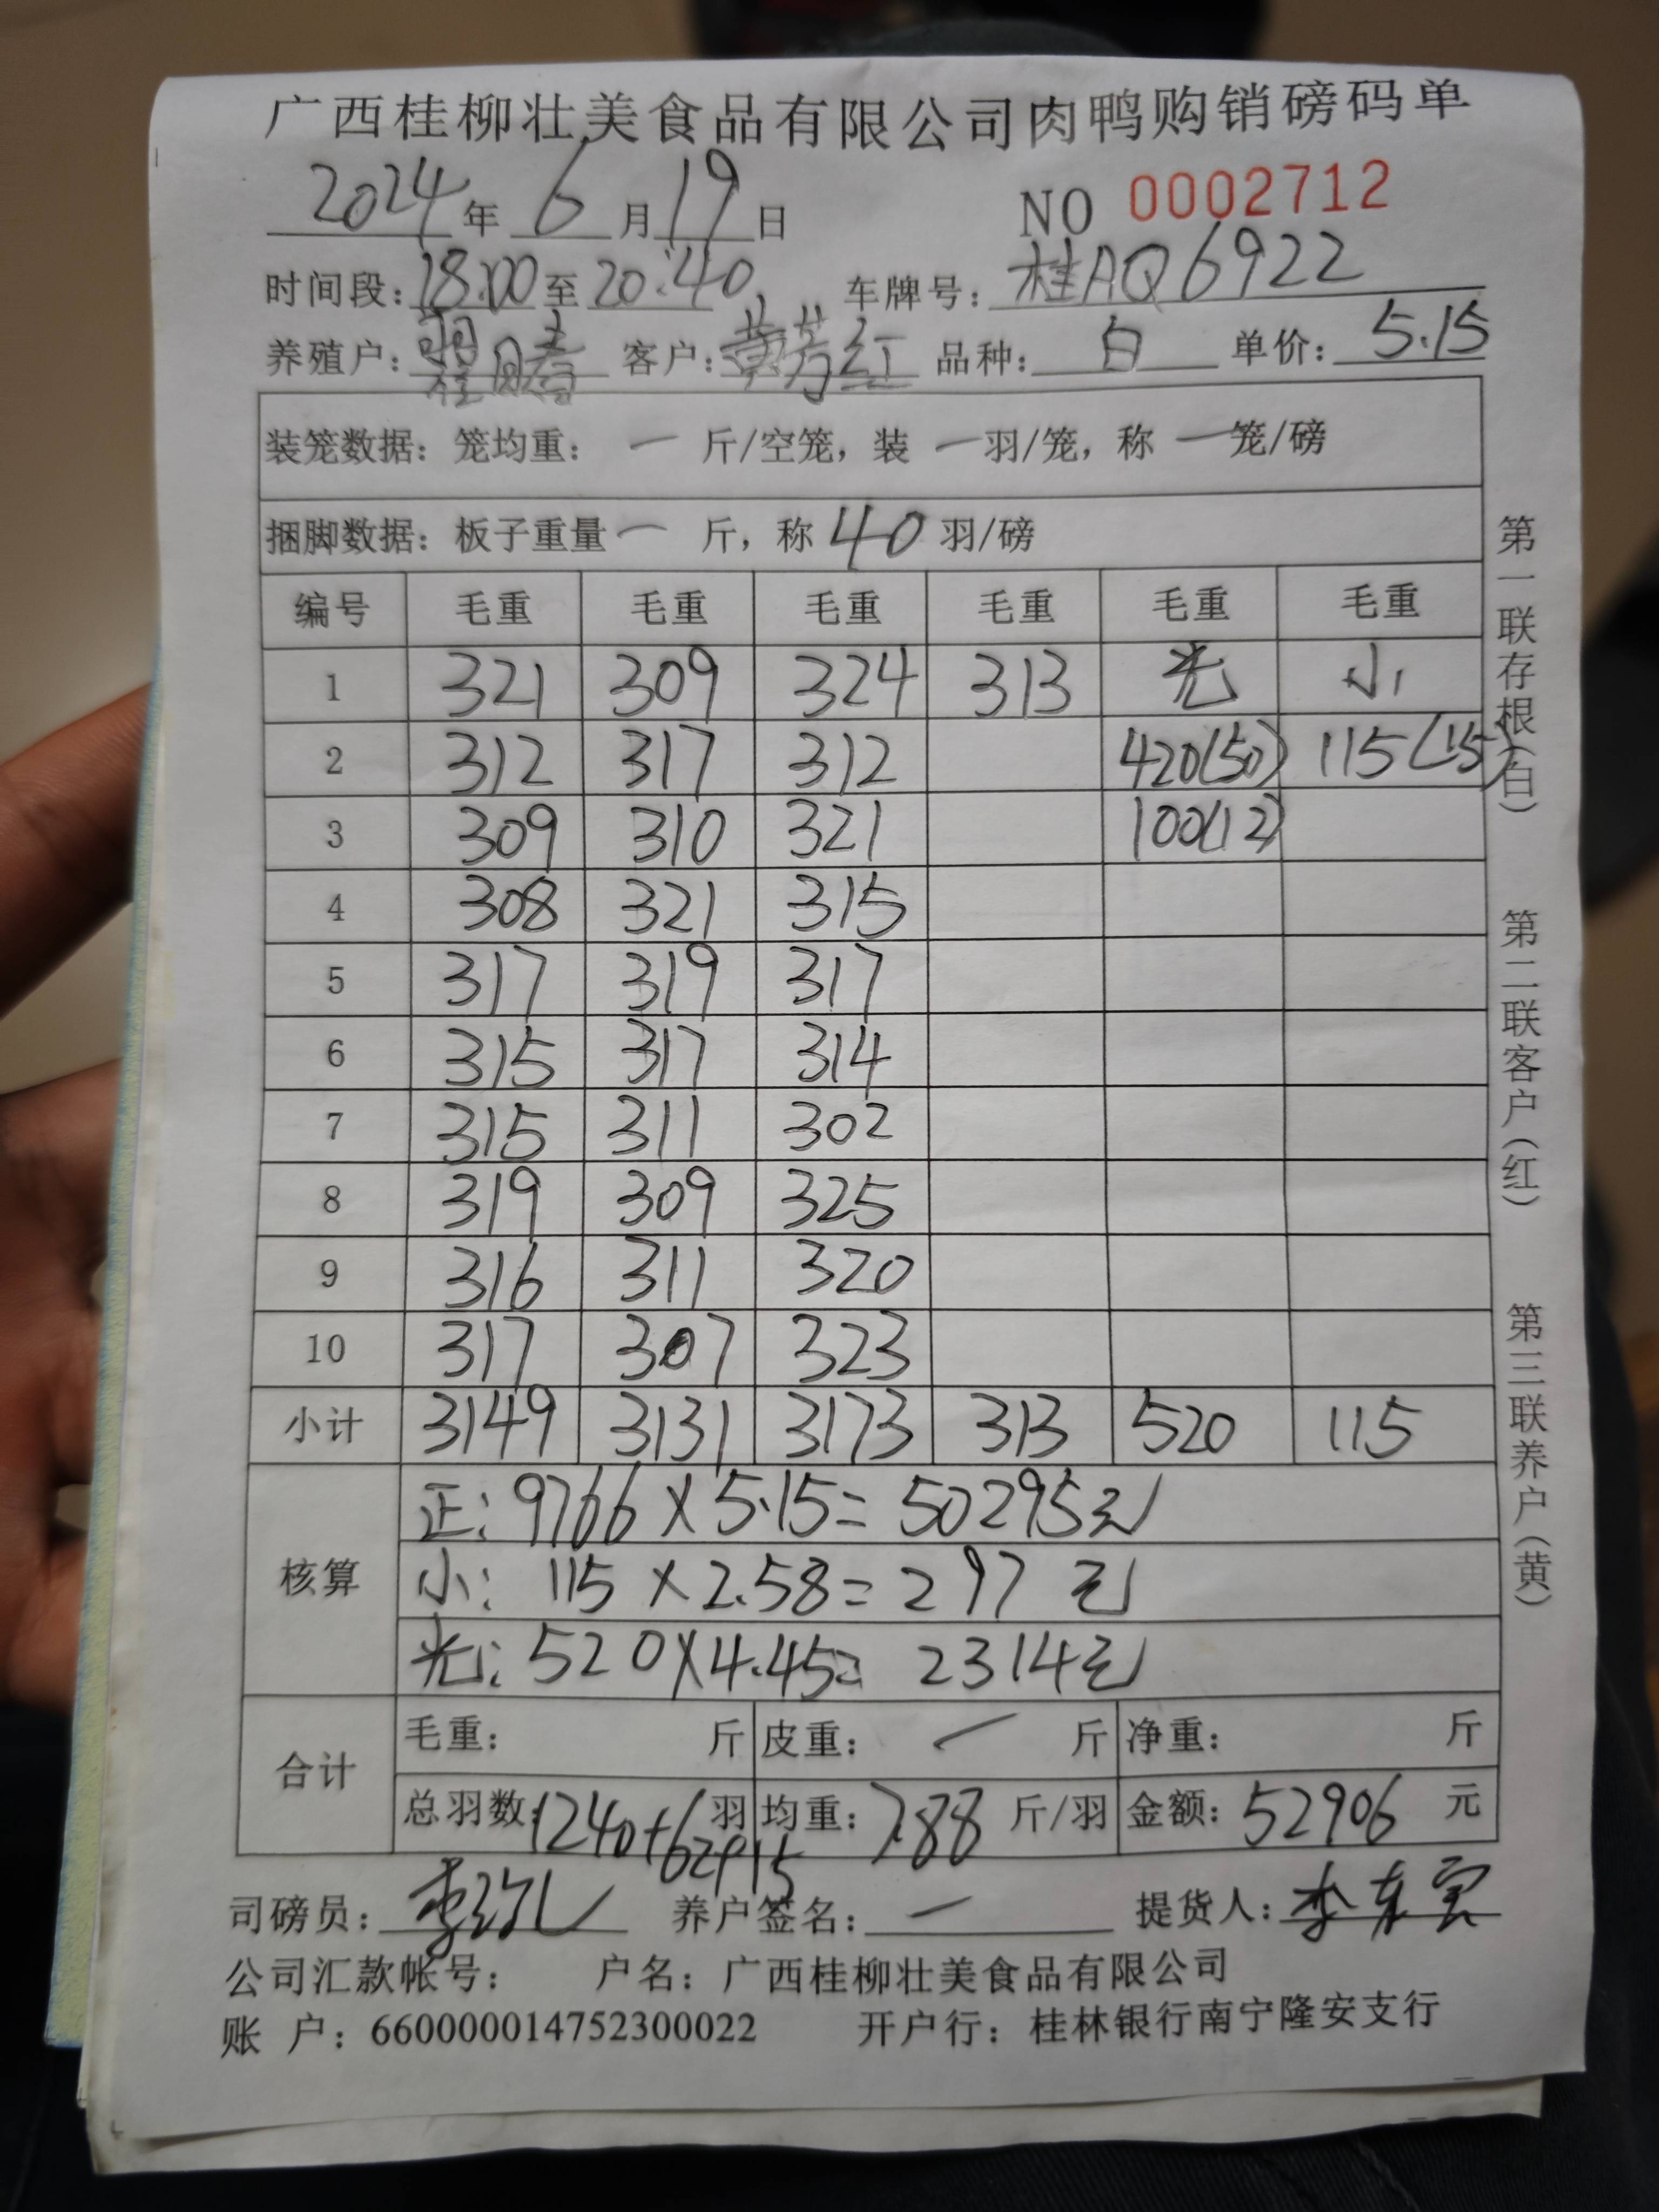 广西桂柳壮美食品有限公司肉鸭购销磅码单
2024年 6月19日 NO 0002712
时间段：18:00至20:40 车牌号：桂AQ6922
养殖户： 客户：黄芳红 品种：白 单价：5.15
装笼数据：笼均重：一 斤/空笼，装 一羽/笼，称 一笼/磅
捆脚数据：板子重量一 斤，称 40 羽/磅
编号 毛重 毛重 毛重 毛重 毛重 毛重
1 321 309 324 313 光 小
2 312 317 312 420(50) 115(15)
3 309 310 321 100(12)
4 308 321 315
5 317 319 317
6 315 317 314
7 315 311 302
8 319 309 325
9 316 311 320
10 317 307 323
小计 3149 3131 3173 313 520 115
核算
正：9766×5.15=50295元
小：115×2.58=297元
光：520×4.45=2314元
合计
毛重： 斤 皮重：一 斤 净重： 斤
总羽数：1240+62+15羽 均重：7.88 斤/羽 金额：52906 元
司磅员： 养户签名：一 提货人：
公司汇款帐号： 户名：广西桂柳壮美食品有限公司
账 户：660000014752300022 开户行：桂林银行南宁隆安支行
第一联存根（白）
第二联客户（红）
第三联养户（黄）